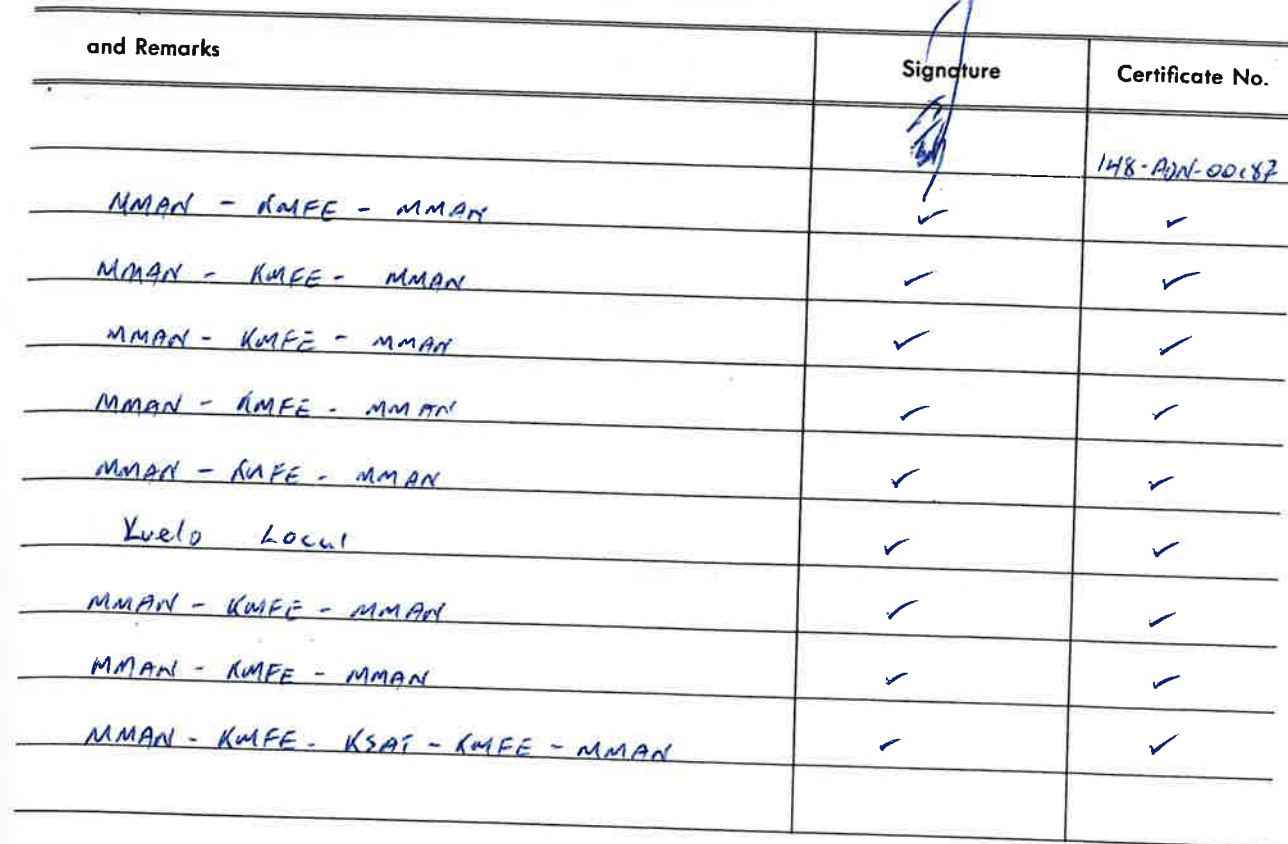 and Remarks Signature Certificate No.
MMAN - KMFE - MMAN ✓ ✓
MMAN - KMFE - MMAN ✓ ✓
MMAN - KMFE - MMAN ✓ ✓
MMAN - KMFE - MMAN ✓ ✓
MMAN - KMFE - MMAN ✓ ✓
Vuelo Local ✓ ✓
MMAN - KMFE - MMAN ✓ ✓
MMAN - KMFE - MMAN ✓ ✓
MMAN - KMFE - KSAT - KMFE - MMAN ✓ ✓